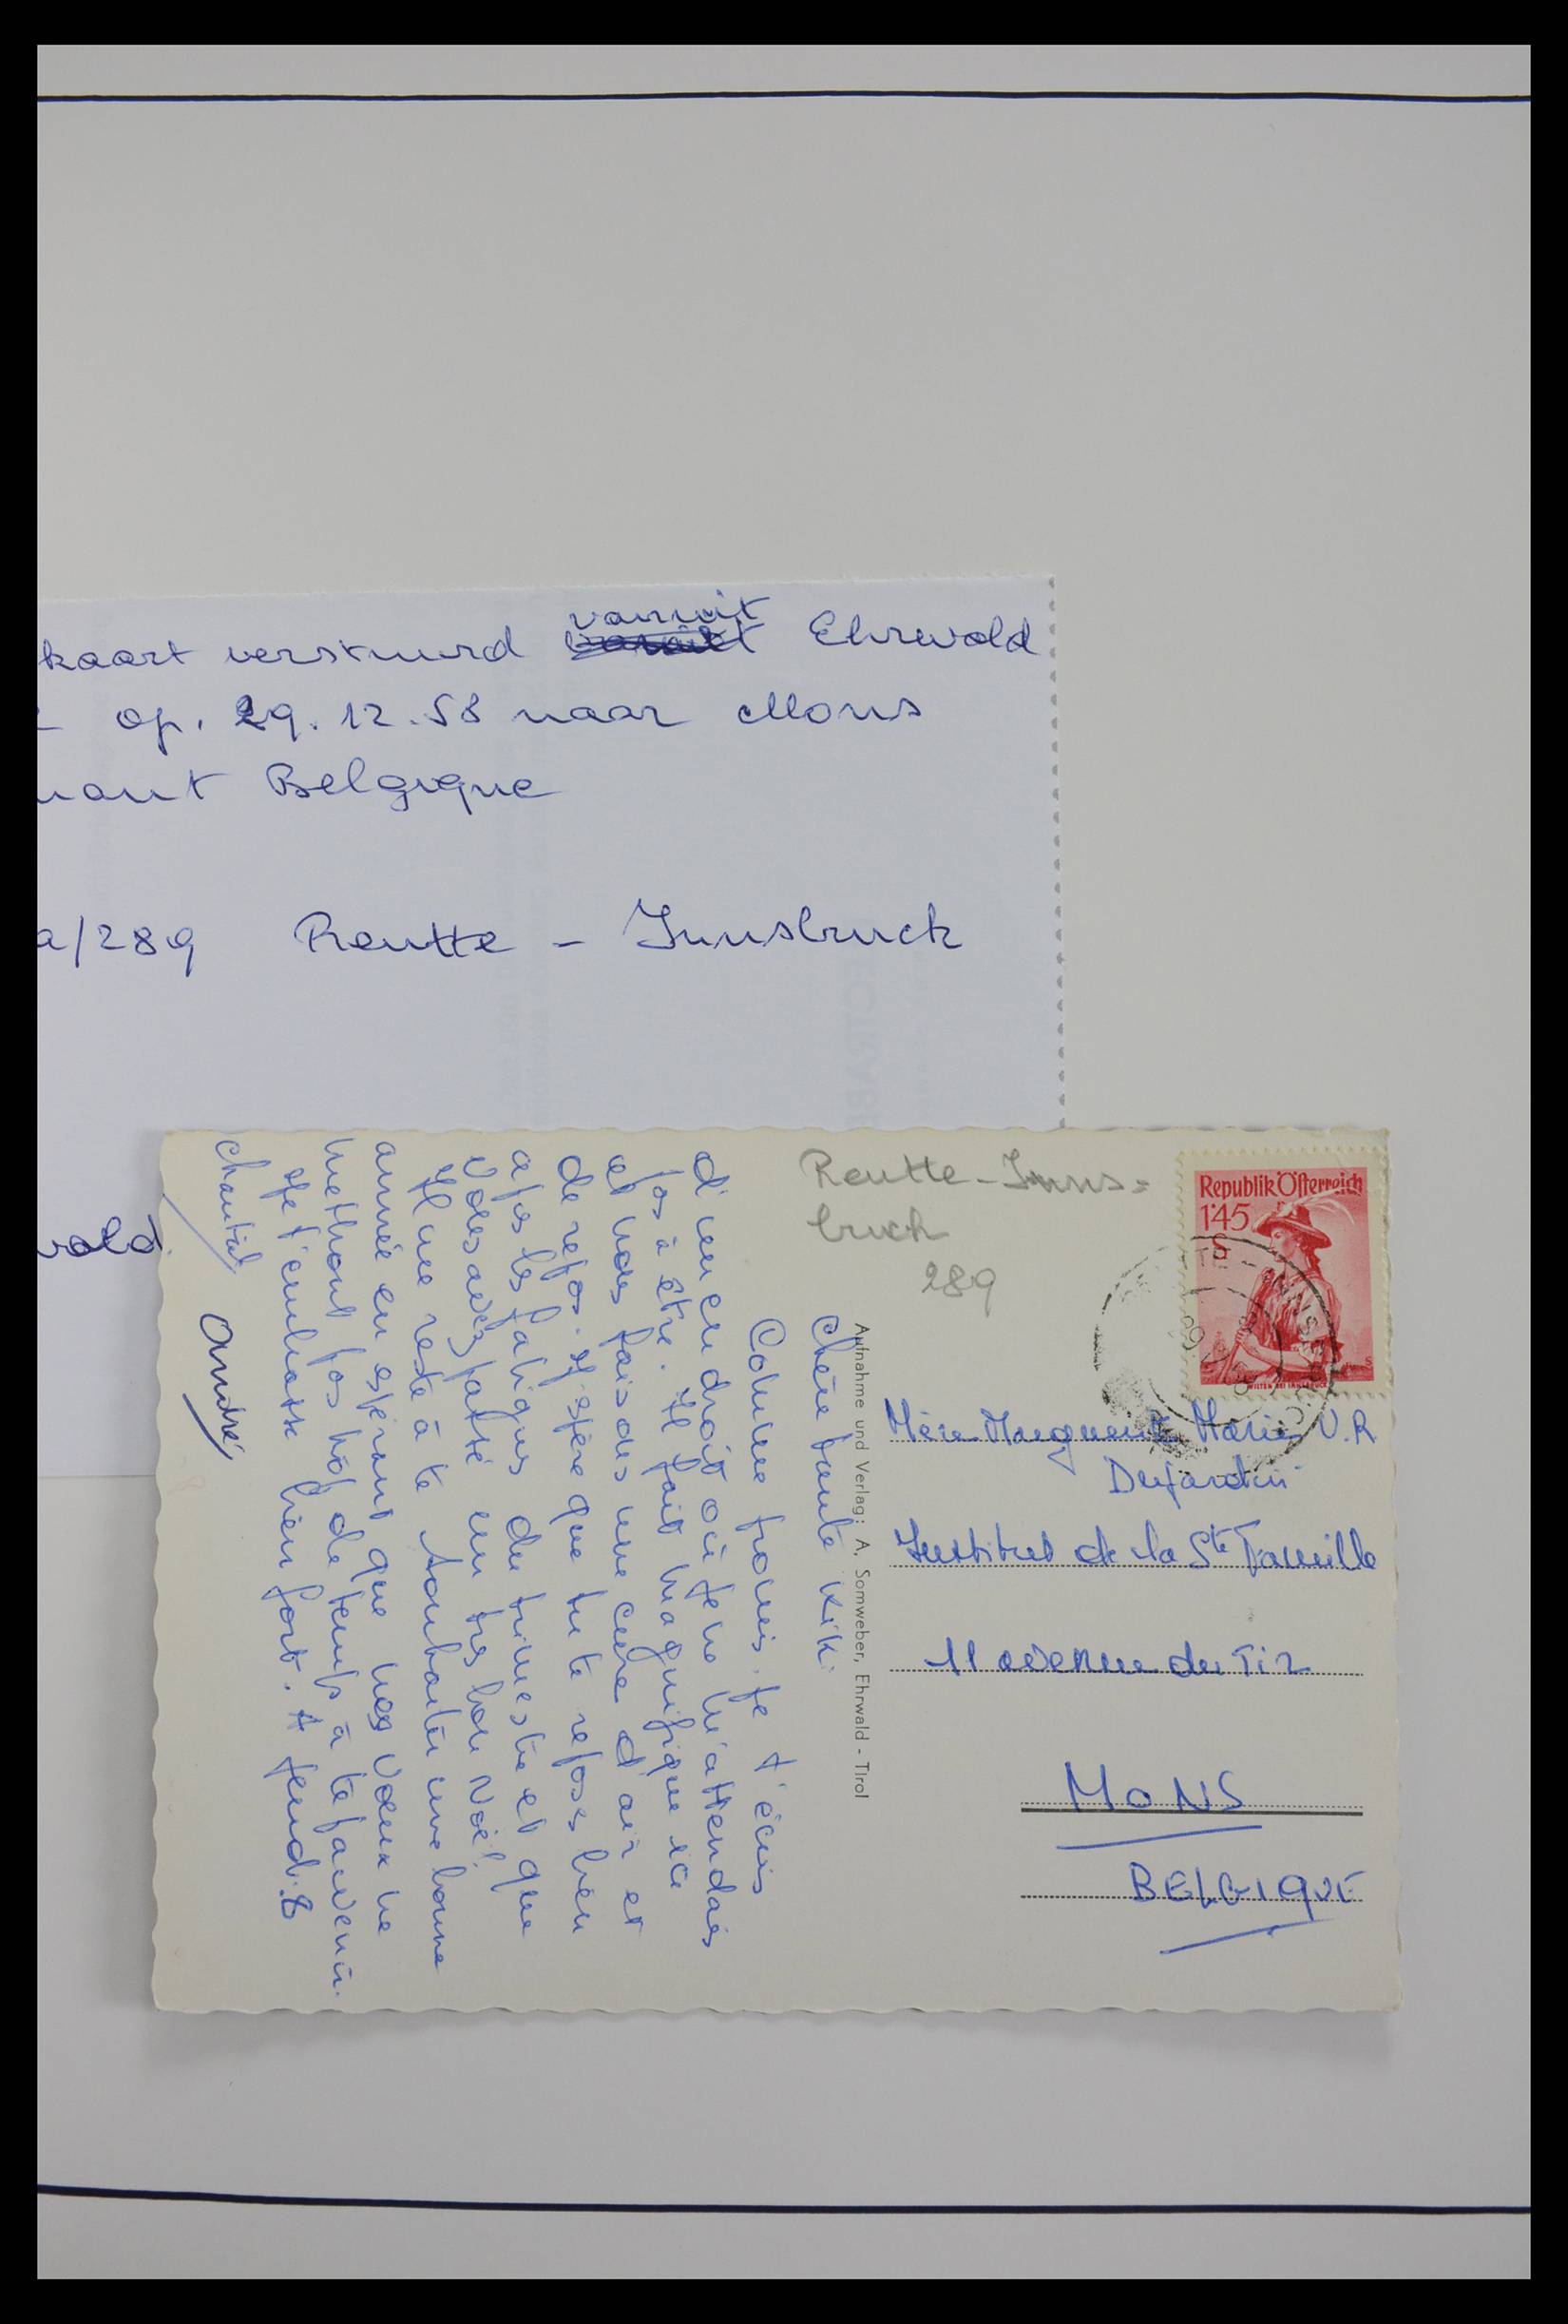 vanuit
kaart verstuurd Ehrwald
op. 29.12.58 naar Mons
Belgique
a/289 Reutte - Innsbruck
Reutte - Inns=
bruck
289
Republik Österreich
1'45
S
Aufnahme und Verlag: A. Somweber, Ehrwald - Tirol
Mère Marguerite Marie V.R
Dujardin
Institut de la Ste Famille
11 avenue du Tir
MONS
BELGIQUE
Chère tante Kiki.
Comme promis je t'écris
d'un endroit où je ne m'attendais
pas à être. Il fait magnifique ici
et nous faisons une cure d'air et
de repos. J'espère que tu te reposes bien
après les fatigues du trimestre et que
vous avez passé un très bon Noël.
Il me reste à te souhaiter une bonne
année en espérant que nos vœux ne
mettront pas trop de temps à te parvenir.
Je t'embrasse bien fort. A jeudi 8
Chantal
André